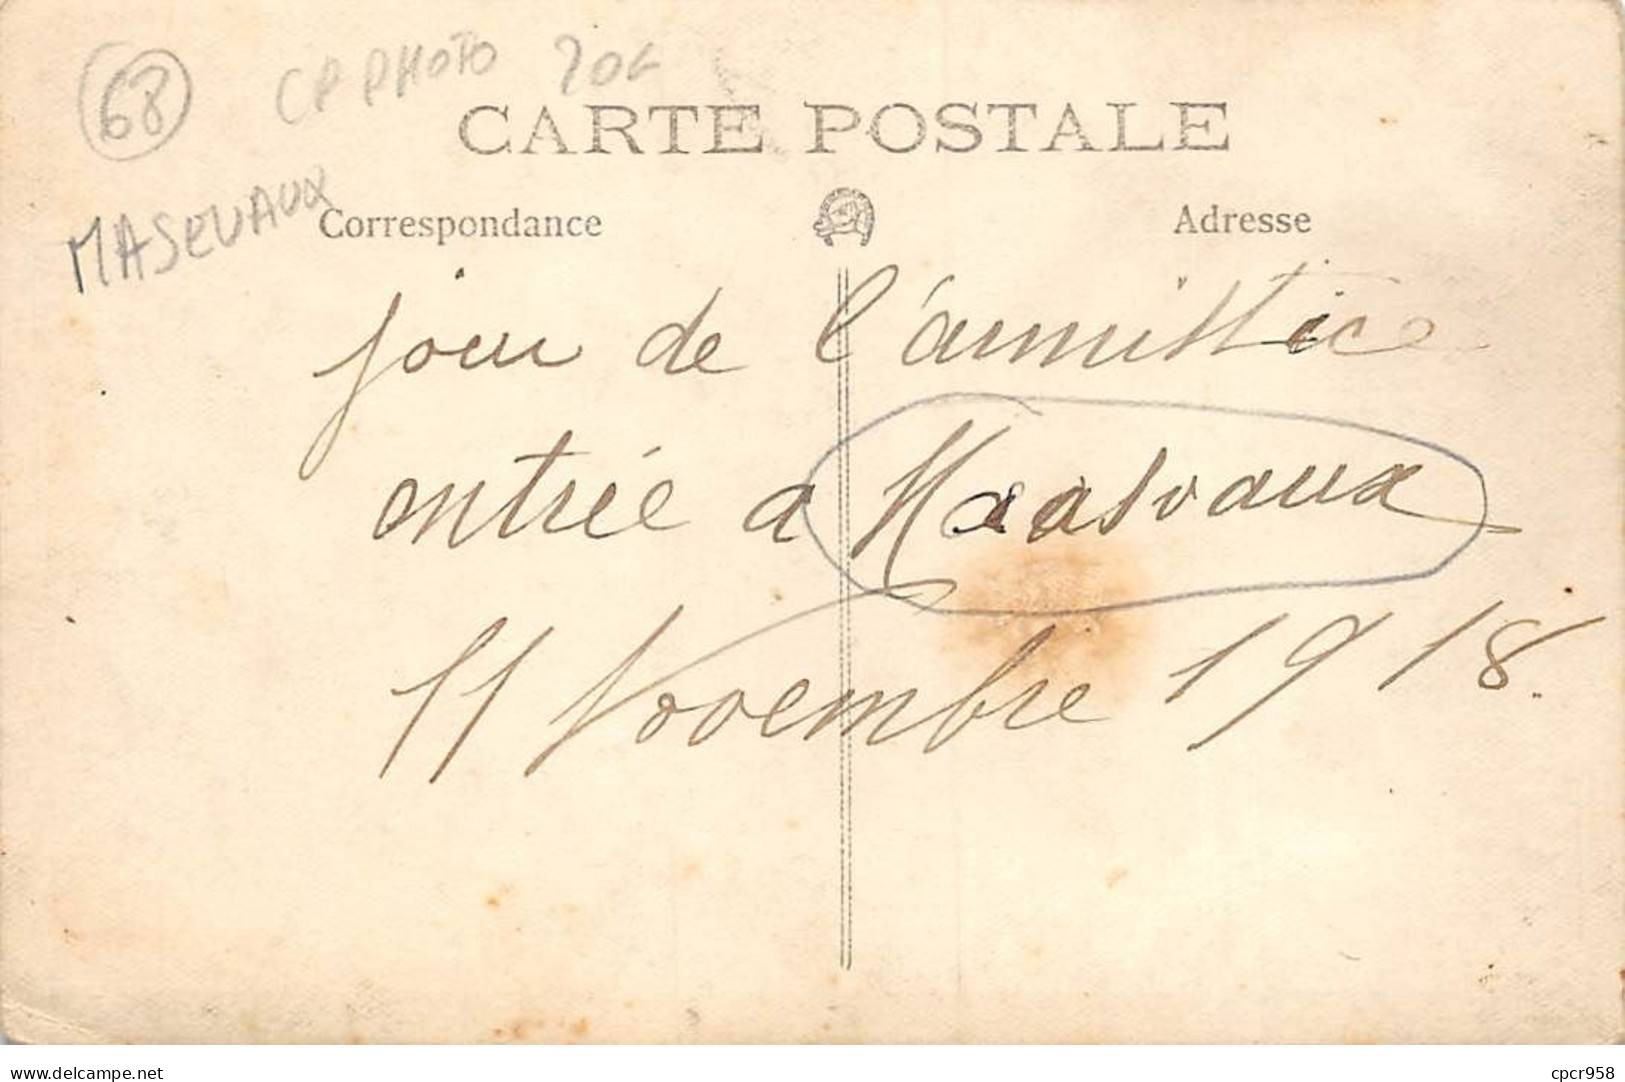 68 CP PHOTO 20€
CARTE POSTALE
MASEVAUX
Correspondance Adresse
jour de l'armistice
entrée a Maasvaux
11 Novembre 1918.
www.delcampe.net cpcr958